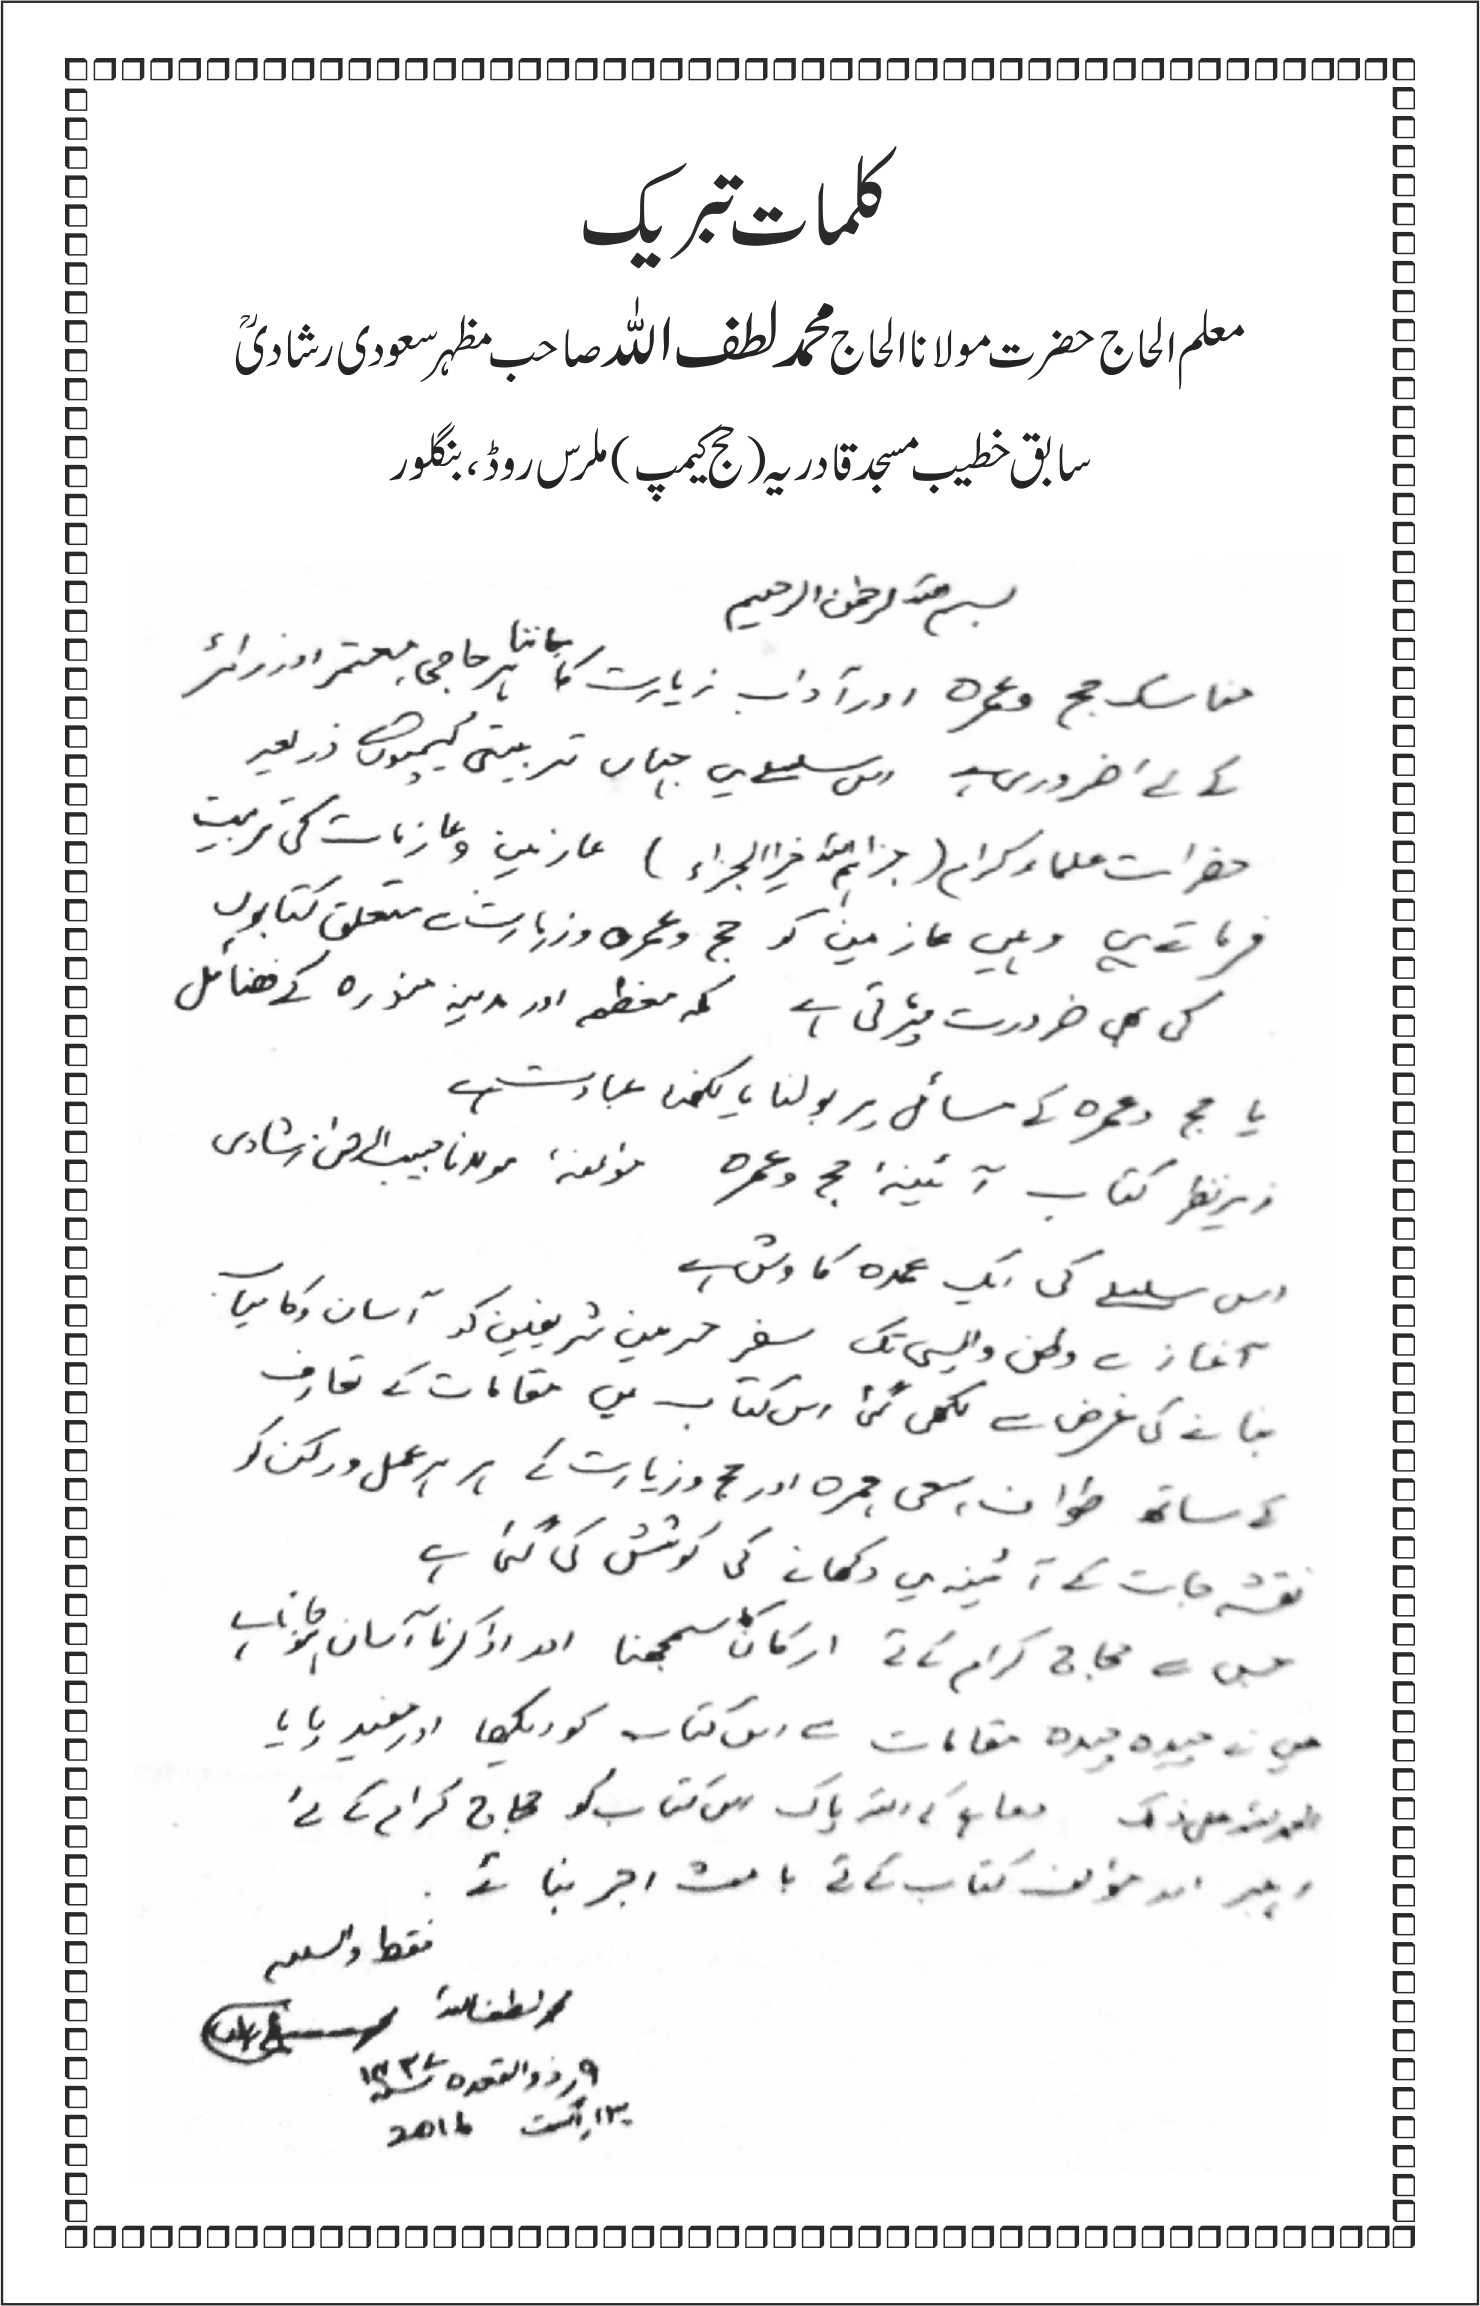 کلمات تبریک
معلم الحاج حضرت مولانا الحاج محمد لطف اللہ صاحب مظہر سعودی رشادیؒ
سابق خطیب مسجد قادریہ (حج کیمپ) ملرس روڈ، بنگلور
بسم اللہ الرحمٰن الرحیم
مناسک حج وعمرہ اور آداب زیارت کا جاننا ہر حاجی، معتمر اور زائر
کے لئے ضروری ہے اس سلسلے میں جہاں تربیتی کیمپوں کے ذریعہ
حضرات علماء کرام (جزاہم اللہ خیرا الجزاء) عازمین وعازمات کی تربیت
فرماتے ہیں وہیں عازمین کو حج وعمرہ وزیارت سے متعلق کتابوں
کی بھی ضرورت پڑتی ہے مکہ معظمہ اور مدینہ منورہ کے فضائل
یا حج وعمرہ کے مسائل پر بولنا یا لکھنا عبادت ہے
زیر نظر کتاب آئینۂ حج وعمرہ مؤلفہ مولانا حبیب الرحمٰن رشادی
اس سلسلے کی ایک عمدہ کاوش ہے
آغاز سے وطن واپسی تک سفر حرمین شریفین کو آسان وکامیاب
بنانے کی غرض سے لکھی گئی اس کتاب میں مقامات کے تعارف
کے ساتھ طواف، سعی، عمرہ اور حج وزیارت کے ہر ہر عمل ورکن کو
نقشہ جات کے آئینہ میں دکھانے کی کوشش کی گئی ہے
جس سے حجاج کرام کے لئے ارکان کا سمجھنا اور ادا کرنا آسان ہو جاتا ہے
میں نے چیدہ چیدہ مقامات سے اس کتاب کو دیکھا اور مفید پایا
الحمد للہ علی ذلک دعا ہے کہ اللہ پاک اس کتاب کو حجاج کرام کے لئے
رہبر اور مؤلف کتاب کے لئے باعث اجر بنائے.
فقط والسلام
محمد لطف اللہ
۹ر ذوالقعدہ ۱۴۳۷
۱۳ر اگست 2016